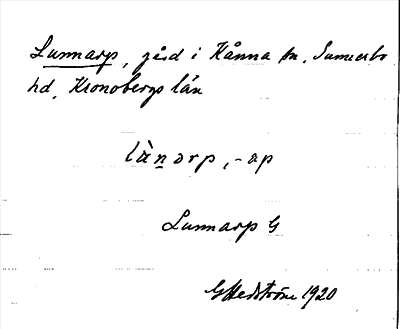 Lunnarp, gård i Kånna sn, Sunnerbo
hd, Kronobergs län
lànarp, -ap
Lunnarp G
G Hedström 1920